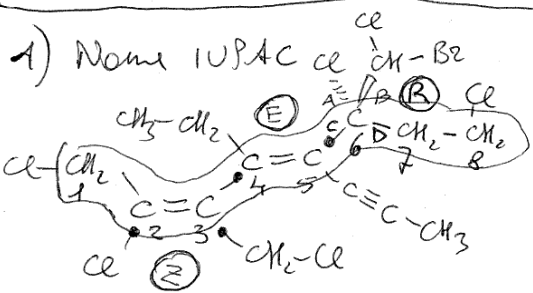 1) Name IUPAC
Cl
Cl CH-Br
A B R Cl
CH3-CH2 E C C D CH2-CH2
Cl CH2 C=C 6 7 8
1 4 5
C=C C≡C-CH3
2 3
Cl Z CH2-Cl